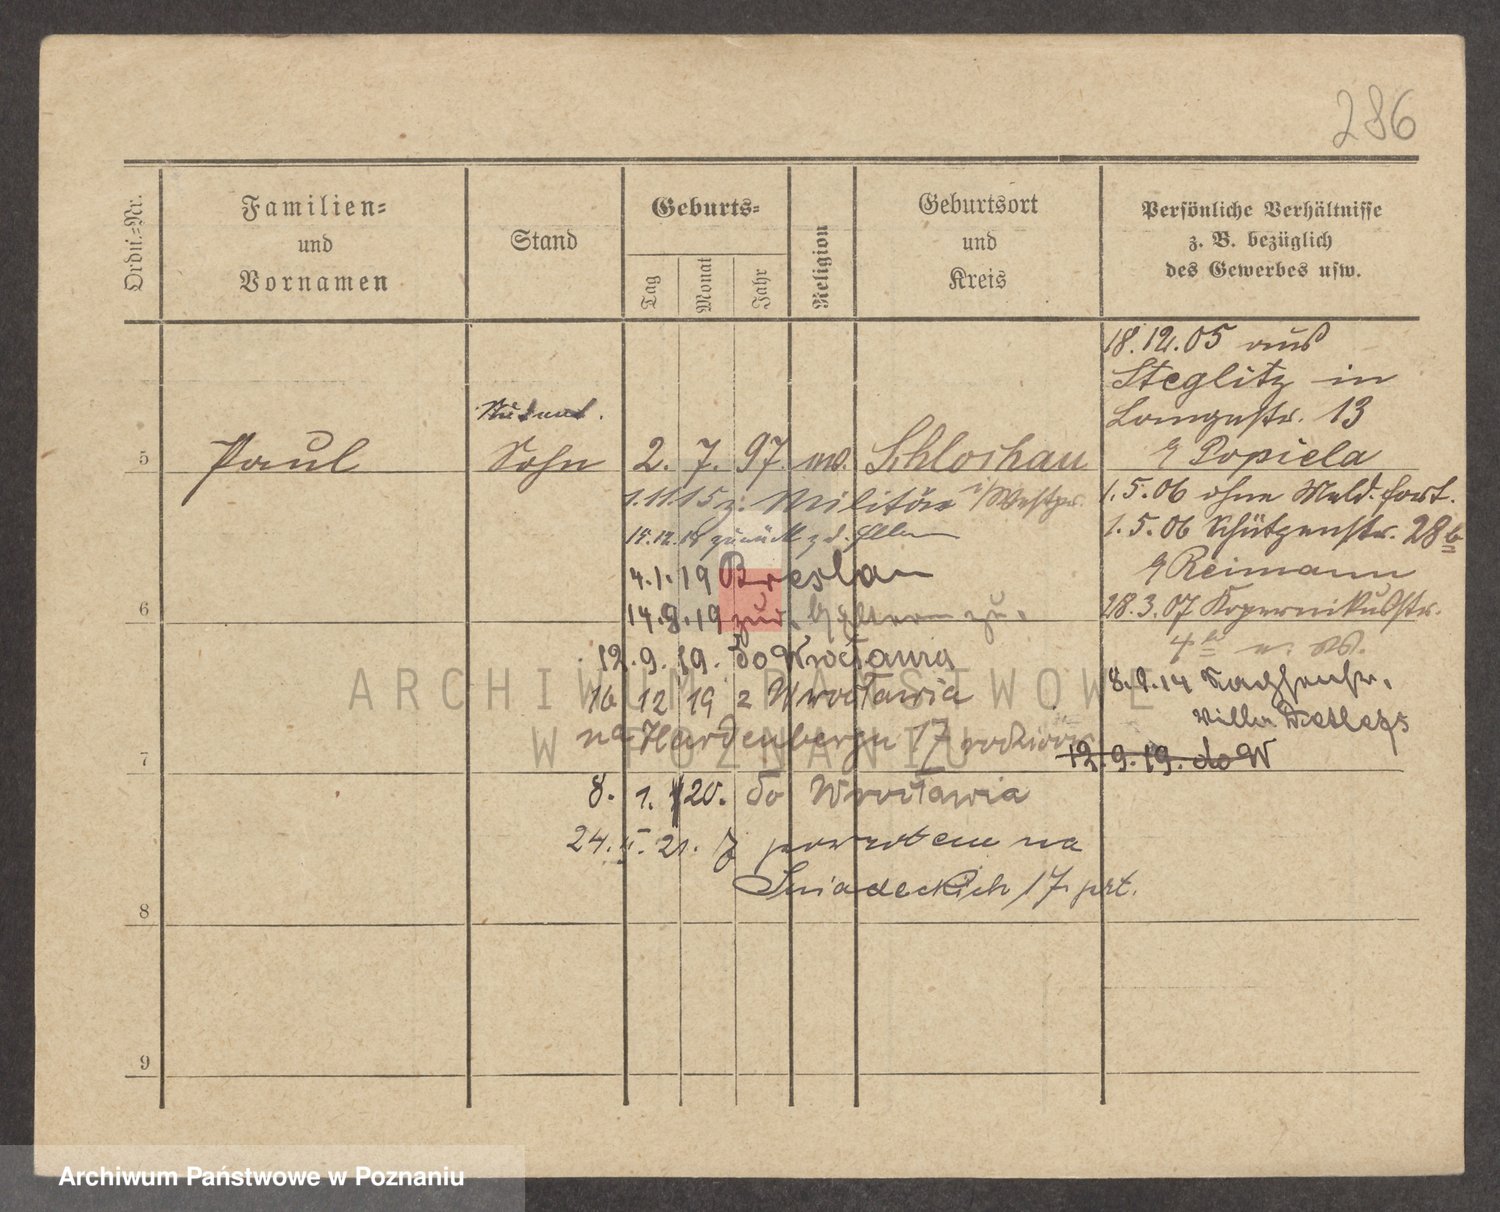 286
Ordn.-Nr.
Familien-
und
Vornamen
Stand
Geburts-
Tag
Monat
Jahr
Religion
Geburtsort
und
Kreis
Persönliche Verhältnisse
z. B. bezüglich
des Gewerbes usw.
18.12.05 aus
Steglitz in
Langestr. 13
b/ Popiela
Student.
5 Paul Sohn 2. 7. 97. Schlochau
1.11.15 z. Militär i/Westpr.
1.5.06 ohne Meld. fort.
14.12.18 zurück z. d. Eltern
1.5.06 Schützenstr. 28b
4.1.19 Breslau
b/ Reimann
6
14.8.19 zur. Eltern zu.
28.3.07 Kopernikusstr.
12.9.19. do Wrocławia
16 12 19 z Wrocławia
8.9.14
Villa
na Hardenberga 17 rodziców
12.9.19. do W
7
8. 1. 20. do Wrocławia
24.II.21. Z powrotem na
Śniadeckich 17 prt.
8
9
ARCHIWUM PAŃSTWOWE
W POZNANIU
Archiwum Państwowe w Poznaniu